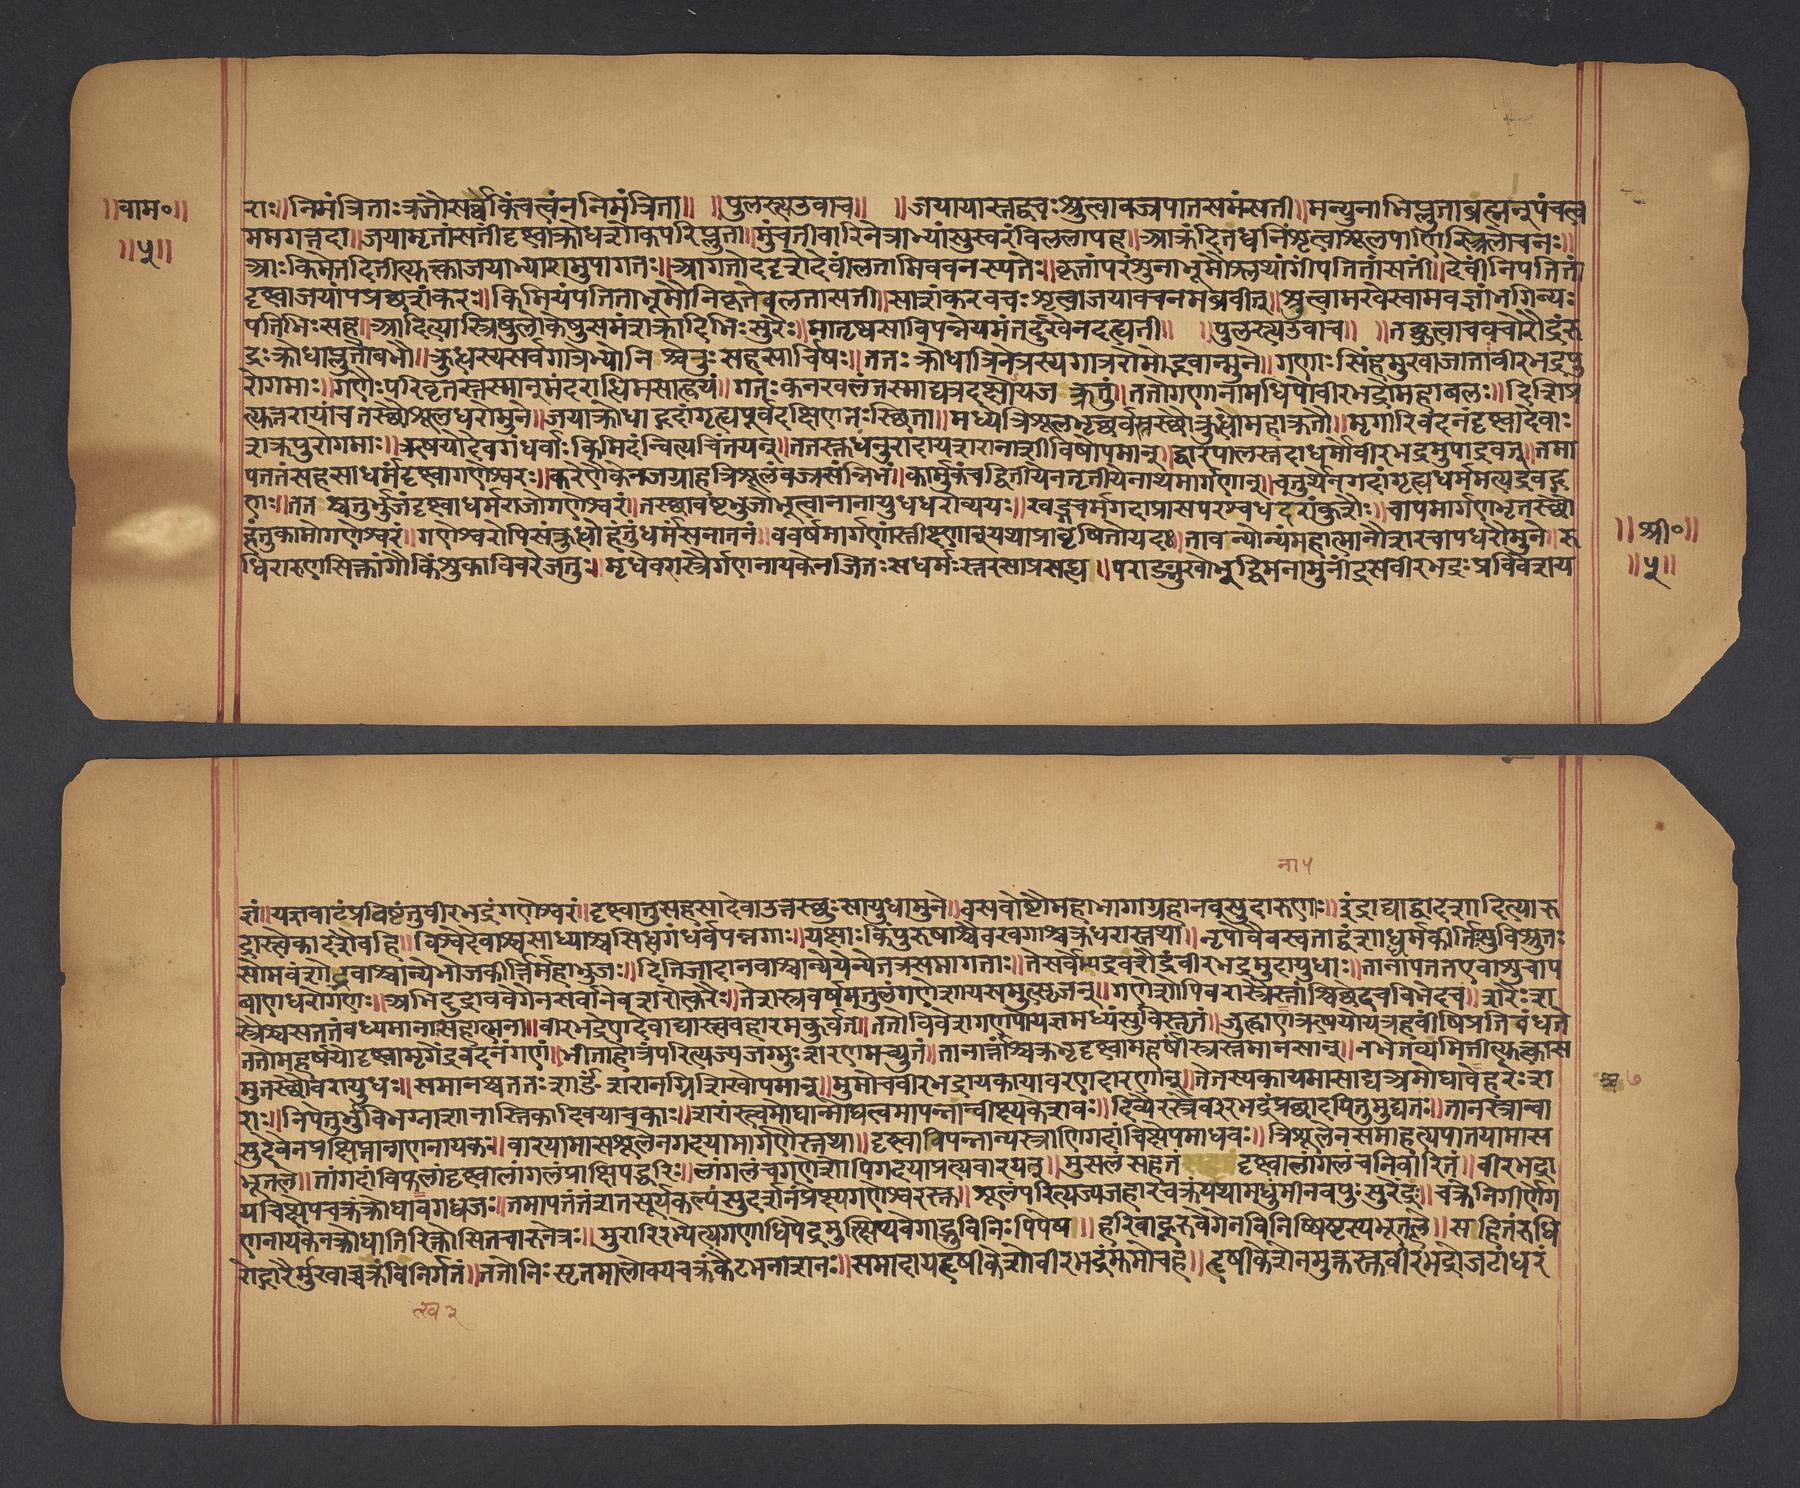 ॥वाम॰॥
॥५॥
राः॥निमंत्रिताःक्रतौसर्वेकिंचत्वंननिमंत्रिता॥ ॥पुलस्त्यउवाच॥ ॥जयायास्तद्वचःश्रुत्वावज्रपातसमंसती॥मन्युनाभिप्लुताब्रह्मन्पंचत्व
मगमत्तदा॥जयामृतांसतींदृष्ट्वाक्रोधशोकपरिप्लुता॥मुंचतीवारिनेत्राभ्यांसुस्वरंविललापह॥आक्रंदितध्वनिंश्रुत्वाशूलपाणिस्त्रिलोचनः॥
आःकिमेतदितीत्युक्त्वाजयाभ्याशमुपागतः॥आगतोददृशेदेवींलतामिववनस्पतेः॥कृत्तांपरशुनाभूमौश्लथांगींपतितांसतीं॥देवींनिपतितां
दृष्ट्वाजयांपप्रछशंकरः॥किमियंपतिताभूमौनिकृत्तेवलतासती॥साशंकरवचःश्रुत्वाजयावचनमब्रवीत्॥श्रुत्वामखेस्वामवज्ञांभगिन्यः
पतिभिःसह॥आदित्यास्त्रिषुलोकेषुसमंशक्रादिभिःसुरैः॥मातृष्वसाविपन्नेयमंतर्दुःखेनदह्यती॥ ॥पुलस्त्यउवाच॥ ॥तच्छ्रुत्वाचवचोरौद्रंरु
द्रःक्रोधाप्लुतोबभौ॥क्रुद्धस्यसर्वगात्रेभ्योनिश्चेरुःसहसार्चिषः॥ततःक्रोधात्रिनेत्रस्यगात्ररोमोद्भवान्मुने॥गणाःसिंहमुखाजातावीरभद्रपु
रोगमाः॥गणैःपरिवृतस्तस्मान्मंदराद्धिमसाह्वयं॥गतःकनखलंतस्माद्यत्रदक्षोयजक्रतुं॥ततोगणानामधिपोवीरभद्रोमहाबलः॥दिशिप्र
त्युत्तरायांचतस्थौशूलधरोमुने॥जयाक्रोधाद्गदांगृह्यपूर्वदक्षिणतःस्थिता॥मध्येत्रिशूलभृच्छर्वस्तस्थौक्रुद्धोमहाक्रतौ॥मृगारिवदनंदृष्ट्वादेवाः
शक्रपुरोगमाः॥ऋषयोदेवगंधर्वाःकिमिदंन्वित्यचिंतयन्॥ततस्तुधनुरादायशरानाशीविषोपमान्॥द्वारपालस्तदाधर्मोवीरभद्रमुपाद्रवत्॥तमा
पतंतंसहसाधर्मंदृष्ट्वागणेश्वरः॥करेणैकेनजग्राहत्रिशूलंवज्रसंन्निभं॥कार्मुकंचद्वितीयेनतृतीयेनाथमार्गणान्॥चतुर्थेनगदांगृह्यधर्ममभ्यद्रवद्ग
णः॥ततश्चतुर्भुजंदृष्ट्वाधर्मराजोगणेश्वरं॥तस्थावष्टभुजोभूत्वानानायुधधरोव्ययः॥खड्गचर्मगदाप्रासपरश्वधवरांकुशैः॥चापमार्गणभृत्तस्थौ
हंतुकामोगणेश्वरं॥गणेश्वरोपिसंक्रुद्धोहंतुंधर्मंसनातनं॥ववर्षमार्गणांस्तीक्ष्णान्यथाप्रावृषितोयदः॥तावन्योन्यंमहात्मानौशरचापधरौमुने॥रु
धिरारुणसिक्तांगौकिंशुकाविवरेजतुः॥मृधेवरास्त्रैर्गणनायकेनजितःसधर्मःस्तरसाप्रसह्य॥पराङ्मुखोभूद्विमनामुनींद्रसवीरभद्रःप्रविवेशय
॥श्री॰॥
॥५॥
ना५
ज्ञं॥यज्ञवाटंप्रविष्टंतुवीरभद्रंगणेश्वरं॥दृष्ट्वातुसहसादेवाउत्तस्थुःसायुधामुने॥वसवोष्टौमहाभागाग्रहानवसुदारुणाः॥इंद्राद्याद्वादशादित्यारु
द्रास्त्वेकादशैवहि॥विश्वेदेवाश्चसाध्याश्चसिद्धगंधर्वपन्नगाः॥यक्षाःकिंपुरुषाश्चैवखगाश्चक्रधरास्तथा॥नृपोवैवस्वताद्वंशाद्धर्मकीर्तिस्तुविश्रुतः
सोमवंशोद्भवाश्चान्येभोजकीर्त्तिर्महाभुजः॥दितिजादानवाश्चान्येयेन्येतत्रसमागताः॥तेसर्वेभ्यद्रवन्रौद्रंवीरभद्रमुदायुधाः॥तानापततएवाशुचाप
बाणधरोगणः॥अभिदुद्राववेगेनसर्वानेवशरोत्करैः॥तेशस्त्रवर्षमतुलंगणेशायसमुत्सृजन्॥गणेशोपिवरास्त्रैस्तांश्चिच्छेदचबिभेदच॥शरैःश
स्त्रैश्चसततंवध्यमानामहात्मना॥वीरभद्रेणदेवाद्यास्त्ववहारमकुर्वत॥ततोविवेशगणपोयज्ञमध्यंसुविस्तृतं॥जुह्वाणाऋषयोयत्रहवींषिप्रतिबंधते
ततोमहर्षयोदृष्ट्वामृगेंद्रवदनंगणं॥भीताहोत्रंपरित्यज्यजग्मुःशरणमच्युतं॥तानार्त्तांश्चक्रभृद्दृष्ट्वामहर्षींस्त्रस्तमानसान्॥नभेतव्यमितीत्युक्त्वास
मुत्तस्थौवरायुधः॥समानम्यततःशार्ङ्गंशरानग्निशिखोपमान्॥मुमोचवीरभद्रायकायावरणदारणान्॥तेतस्यकायमासाद्यअमोघावैहरेःश
राः॥निपेतुर्भुविभग्नाशानास्तिकादिवयाचकाः॥शरांस्त्वमोघान्मोघत्वमापन्नान्वीक्ष्यकेशवः॥दिव्यैरस्त्रैर्वीरभद्रंप्रछादयितुमुद्यतः॥तानस्त्रान्वा
सुदेवेनप्रक्षिप्तान्गणनायकः॥वारयामासशूलेनगदयामार्गणैस्तथा॥दृष्ट्वाविपन्नान्यस्त्राणिगदांचिक्षेपमाधवः॥त्रिशूलेनसमाहत्यपातयामास
भूतले॥तांगदांविफलांदृष्ट्वालांगलंप्राक्षिपद्धरिः॥लांगलंचगणेशोपिगदयाप्रत्यवारयत्॥मुसलंसहतंदृष्ट्वालांगलंचनिवारितं॥वीरभद्रा
यचिक्षेपचक्रंक्रोधात्खगध्वजः॥तमापतंतंशतसूर्यकल्पंसुदर्शनंप्रेक्ष्यगणेश्वरस्तु॥शूलंपरित्यज्यजहारचक्रंयथामधुंमीनवपुःसुरेंद्रः॥चक्रेनिगीर्णेग
णनायकेनक्रोधातिरिक्तोसितचारुनेत्रः॥मुरारिरभ्येत्यगणाधिपेंद्रमुत्क्षिप्यवेगाद्भुविनिःपिपेष॥हरिबाहूरुवेगेनविनिष्पिष्टस्यभूतले॥सहितंरुधि
रोद्गारैर्मुखाच्चक्रंविनिर्गतं॥ततोनिःसृतमालोक्यचक्रंकैटभनाशनः॥समादायहृषीकेशोवीरभद्रंमुमोचह॥हृषीकेशेनमुक्तस्तुवीरभद्रोजटाधरं
त्ख२